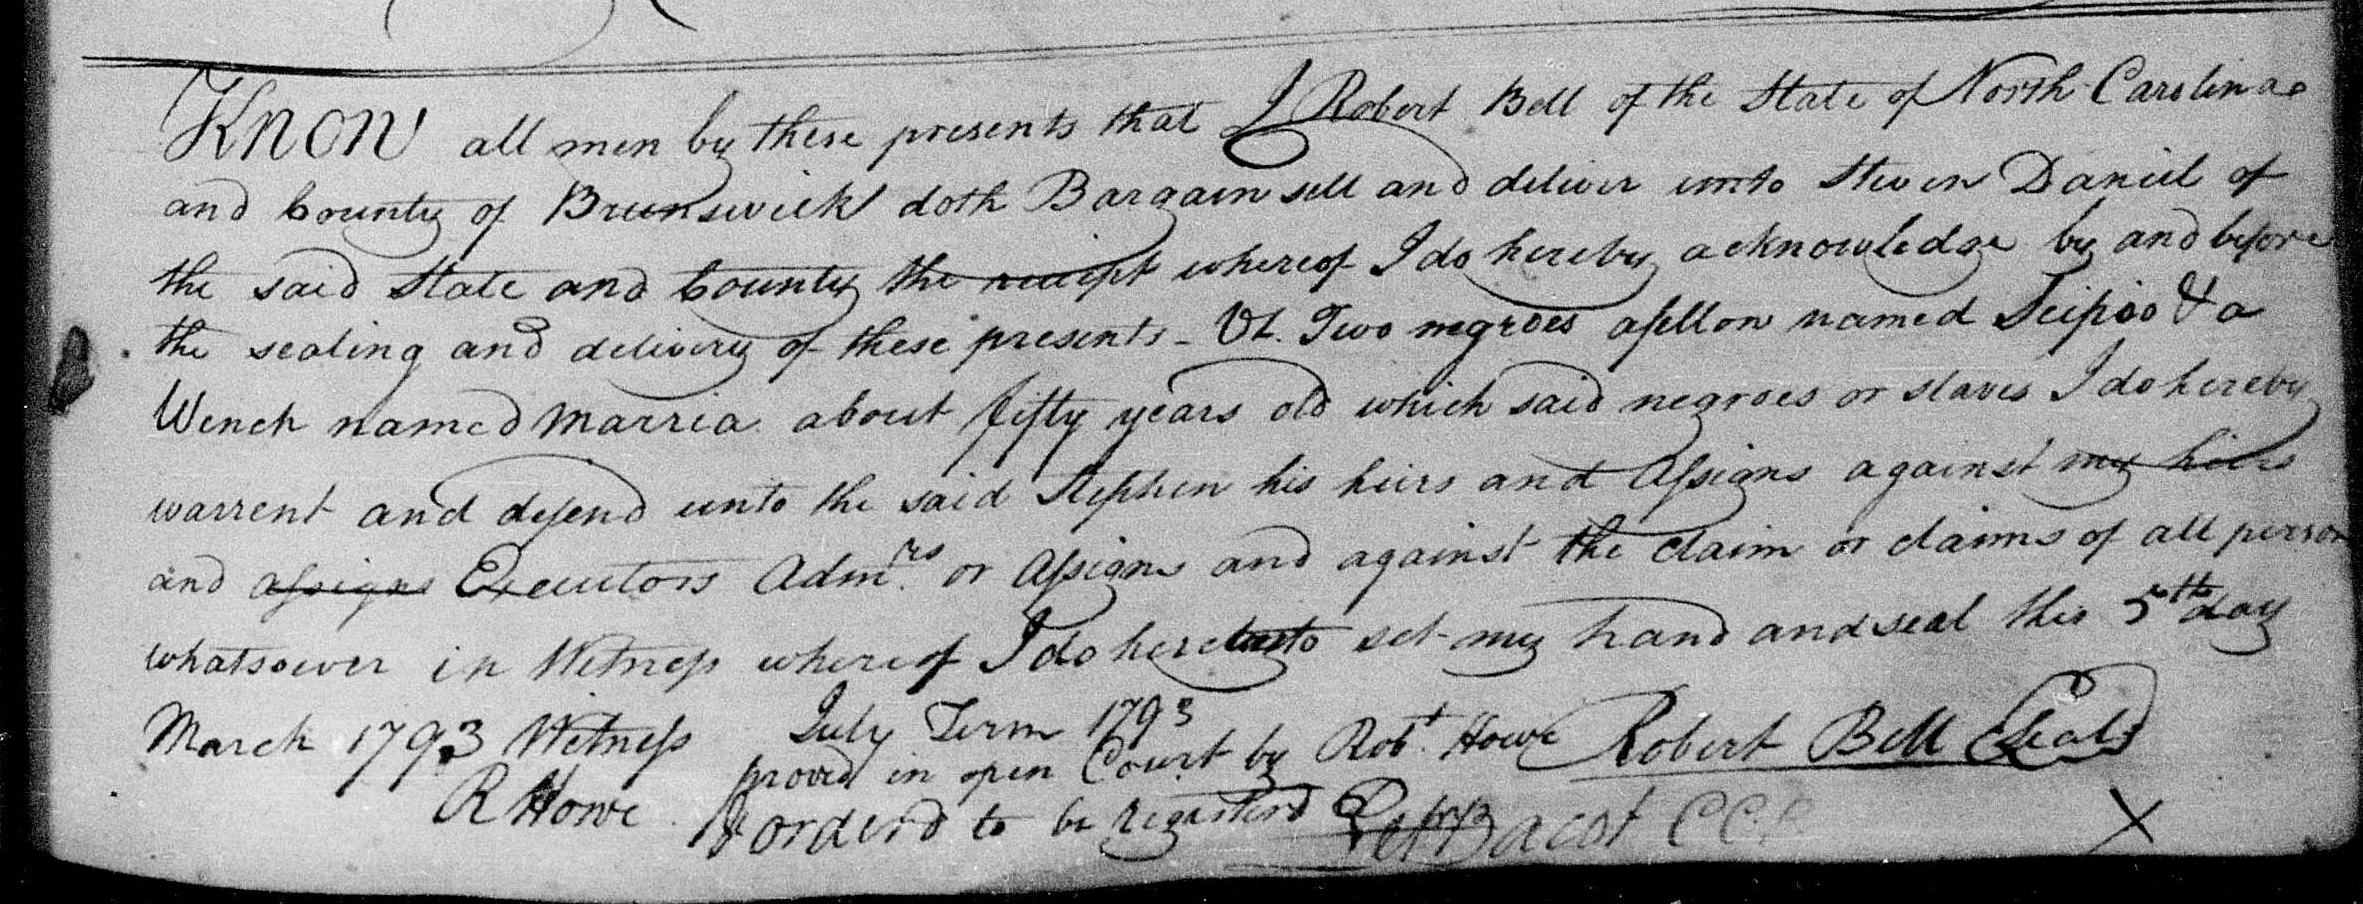 Know all men by these presents that I Robert Bell of the State of North Carolina
and County of Brunswick doth Bargain sell and deliver unto Steven Daniel of
the said State and County the reciept whereof I do hereby acknowledge by and before
the sealing and delivery of these presents - Vt. Two negroes a fellow named Scipio & a
Wench named Marria about fifty years old which said negroes or slaves I do hereby
warrent and defend unto the said Stephen his heirs and Assigns against my heirs
and assigns Executors Admrs. or Assigns and against the claim or claims of all person
whatsoever in Witness whereof I do hereunto set my hand and seal this 5th day
March 1793 Witness
R Howe
Robert Bell Seal
July Term 1793
proved in open Court by Robt. Howe
& orderd to be registerd
Pet Bacot CC
X